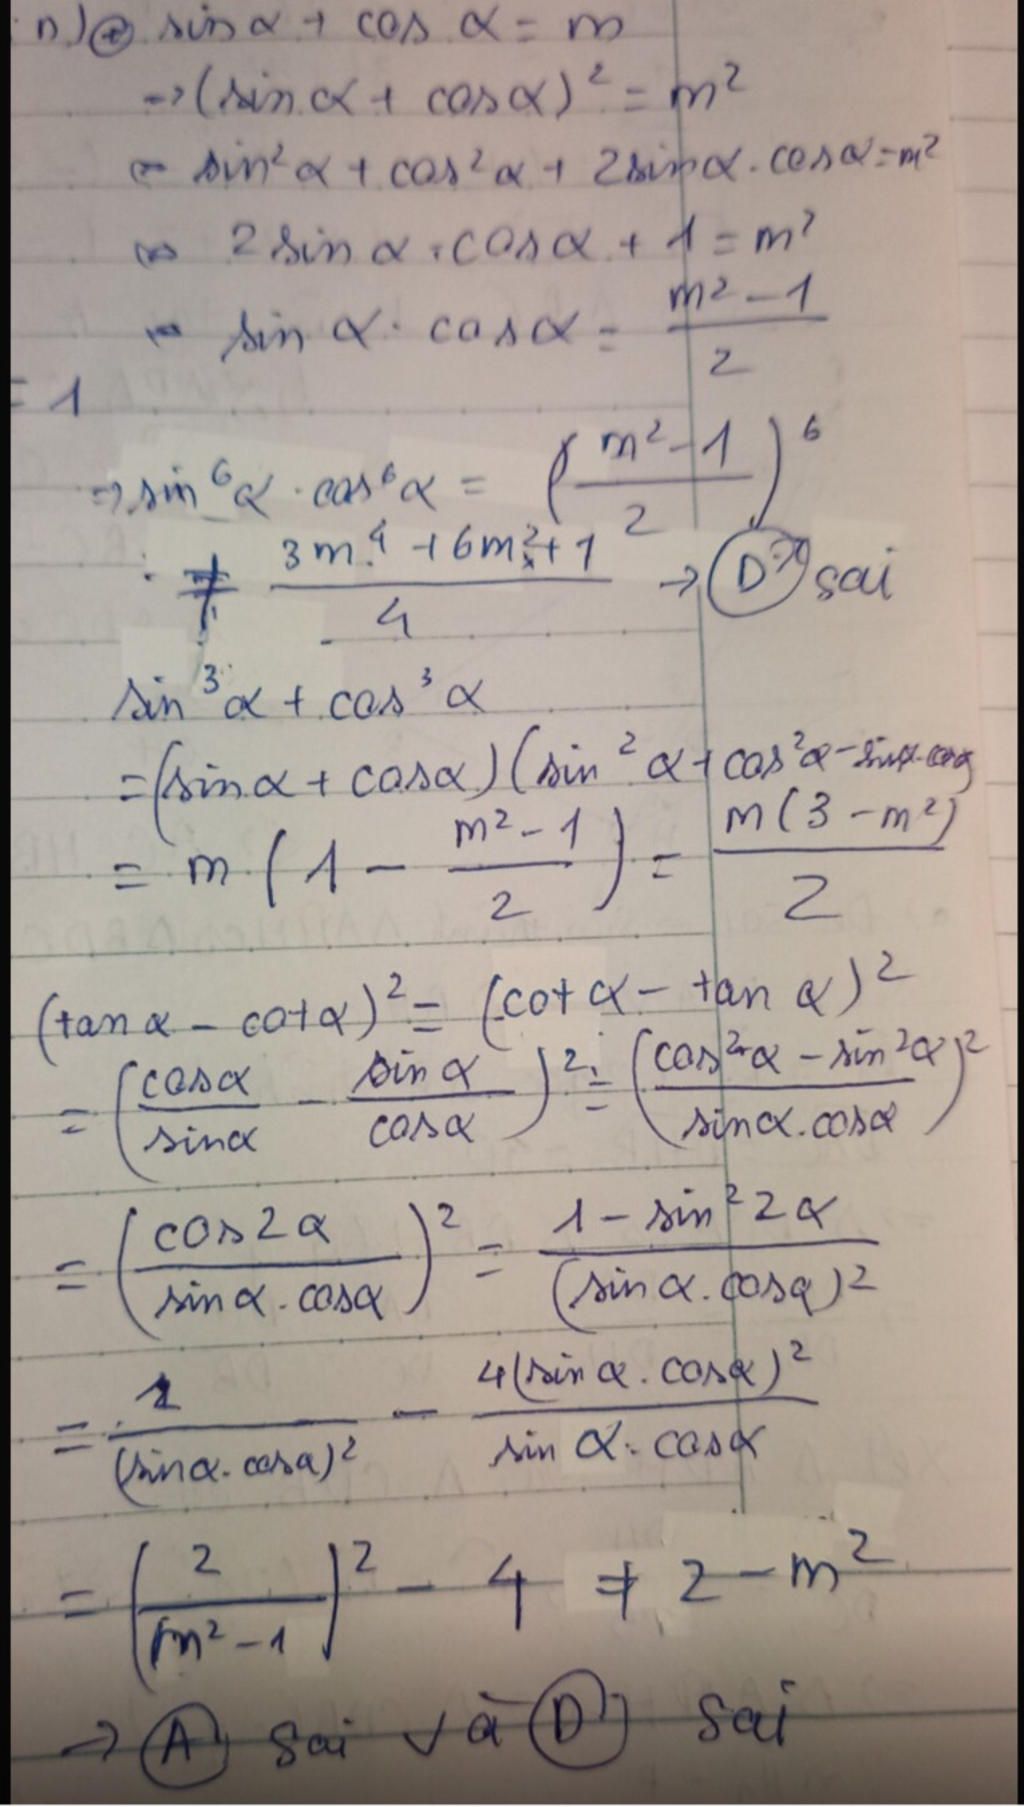 n) ⊕ sin α + cos α = m
→ (sin α + cos α)² = m²
⇔ sin²α + cos²α + 2sin α . cos α = m²
⇔ 2 sin α . cos α + 1 = m²
⇔ sin α . cos α = (m² - 1)/2
= 1
→ sin⁶α . cos⁶α = ((m² - 1)/2)⁶
≠ (3m⁴ + 6m² + 1)/4 → D sai
sin³α + cos³α
= (sin α + cos α)(sin²α + cos²α - sin α . cos α
= m . (1 - (m² - 1)/2) = m(3 - m²)/2
(tan α - cot α)² = (cot α - tan α)²
= (cos α/sin α - sin α/cos α)² = ((cos²α - sin²α)/(sin α . cos α))²
= (cos 2α/(sin α . cos α))² = (1 - sin²2α)/(sin α . cos α)²
= 1/(sin α . cos α)² - 4(sin α . cos α)²/(sin α . cos α)
= (2/(m² - 1))² - 4 ≠ 2 - m²
→ A) sai và D) sai